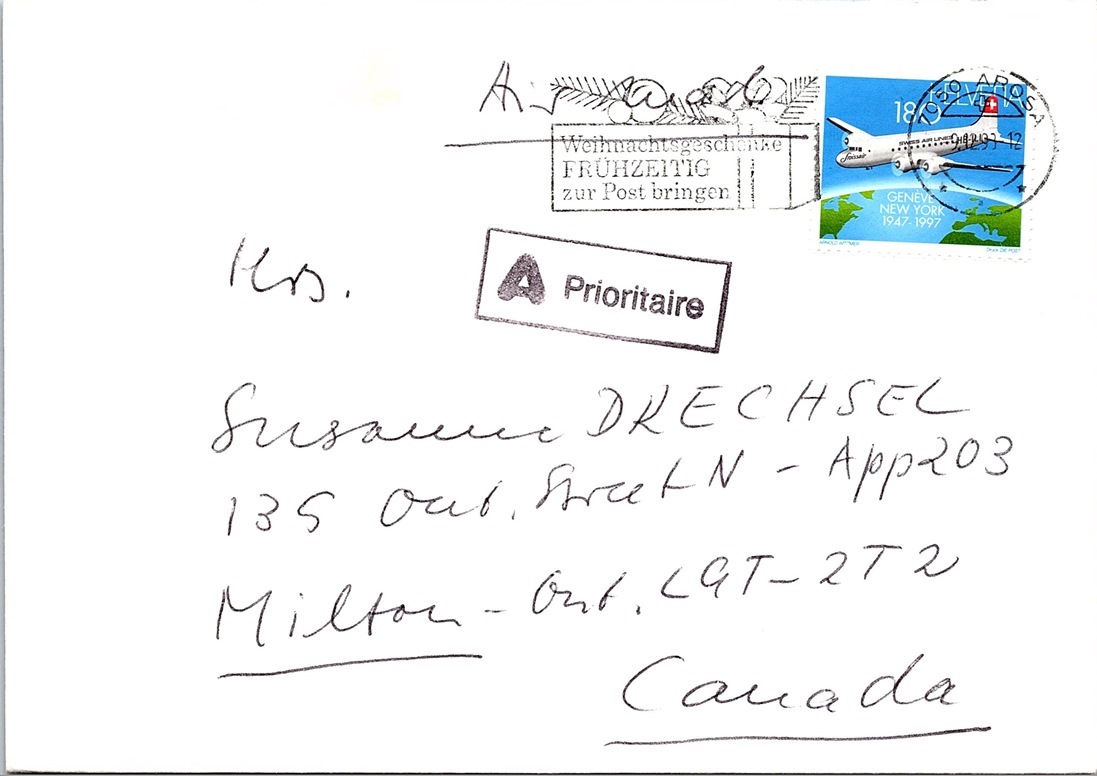 Air mail
Weihnachtsgeschenke
FRÜHZEITIG
zur Post bringen
7050 AROSA
9.12.99-12
HELVETIA
180
SWISS AIR LINES
Swissair
GENÈVE
NEW YORK
1947-1997
ARNOLD WITTMER
A Prioritaire
Mrs.
Susanne DRECHSEL
135 Ont. Street N - App 203
Milton - Ont. L9T-2T2
Canada